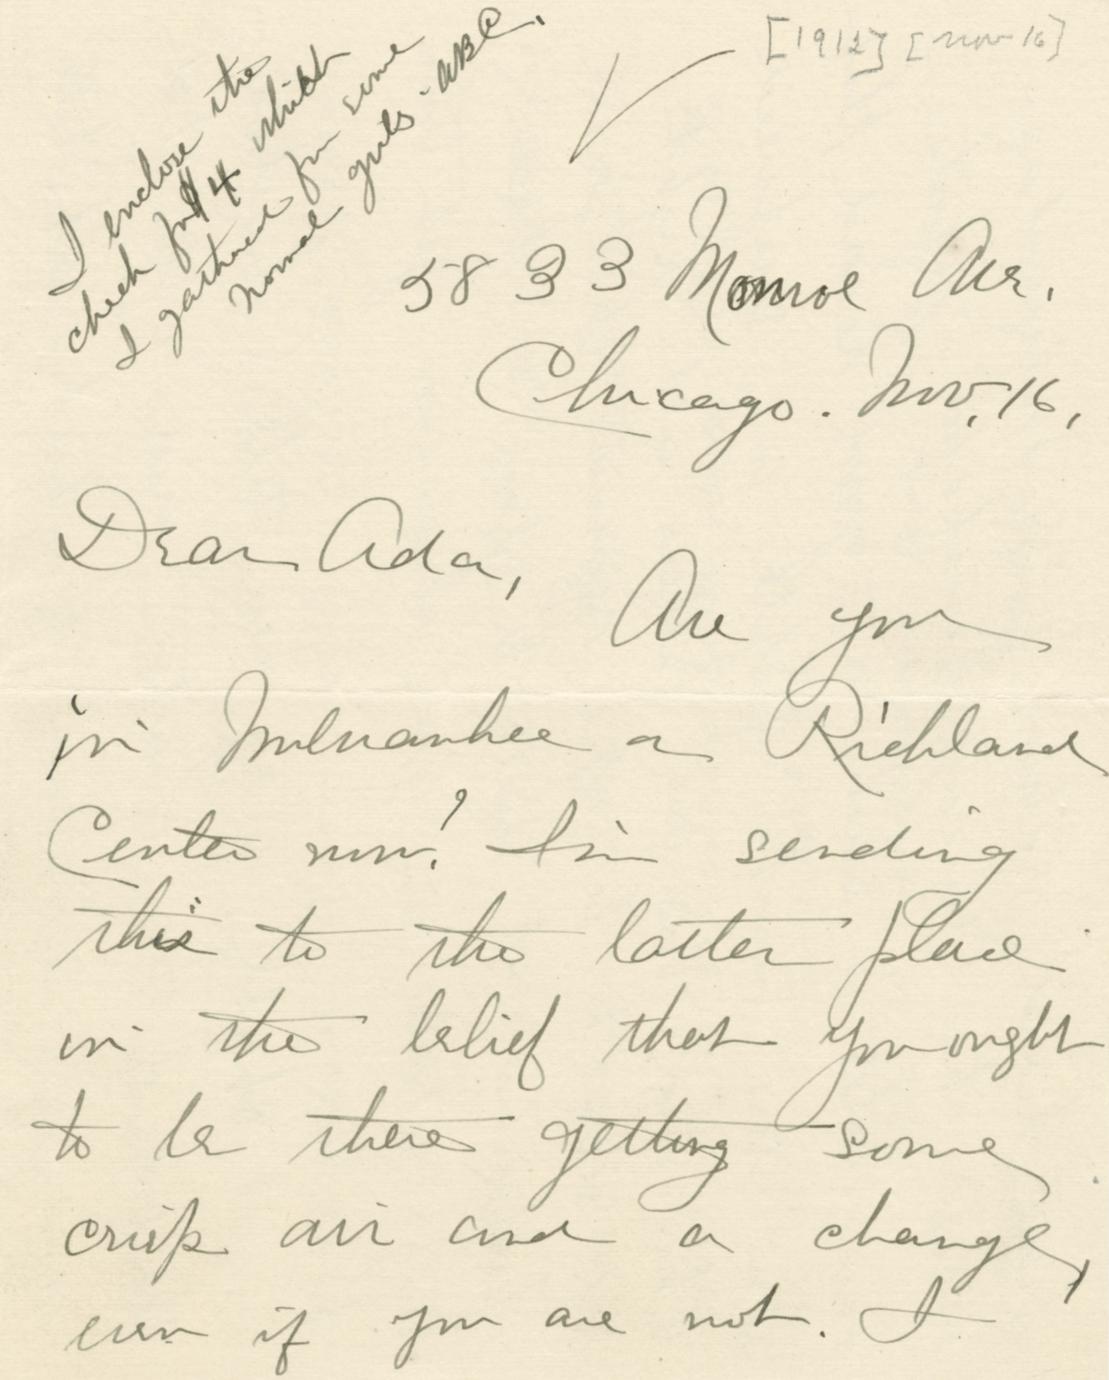 [1912] [Nov 16]
I enclose the
check for $4 which
I gathered for some
normal girls - ABC.
5833 Monroe Ave.
Chicago. Nov, 16,
Dear Ada,
Are you
in Milwaukee or Richland
Center now? I'm sending
this to the latter place
in the belief that you ought
to be there getting some
crisp air and a change,
even if you are not. I